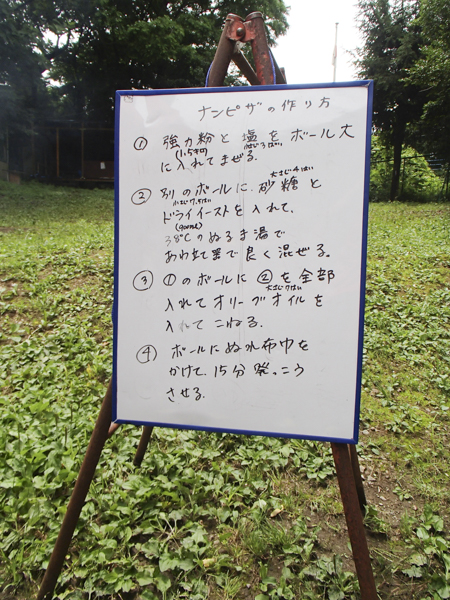 ナンピザの作り方
① 強力粉と塩をボール大
(1.5キロ) 小さじ3ばい
に入れてまぜる.
② 別のボールに、砂糖と
小さじ7.5はい 大さじ4はい
ドライイーストを入れて、
38℃のぬるま湯で
あわ立て器で良く混ぜる。
③ ①のボールに ②を全部
大さじ7はい
入れてオリーブオイルを
入れてこねる.
④ ボールにぬれ布巾を
かけて、15分発っこう
させる.